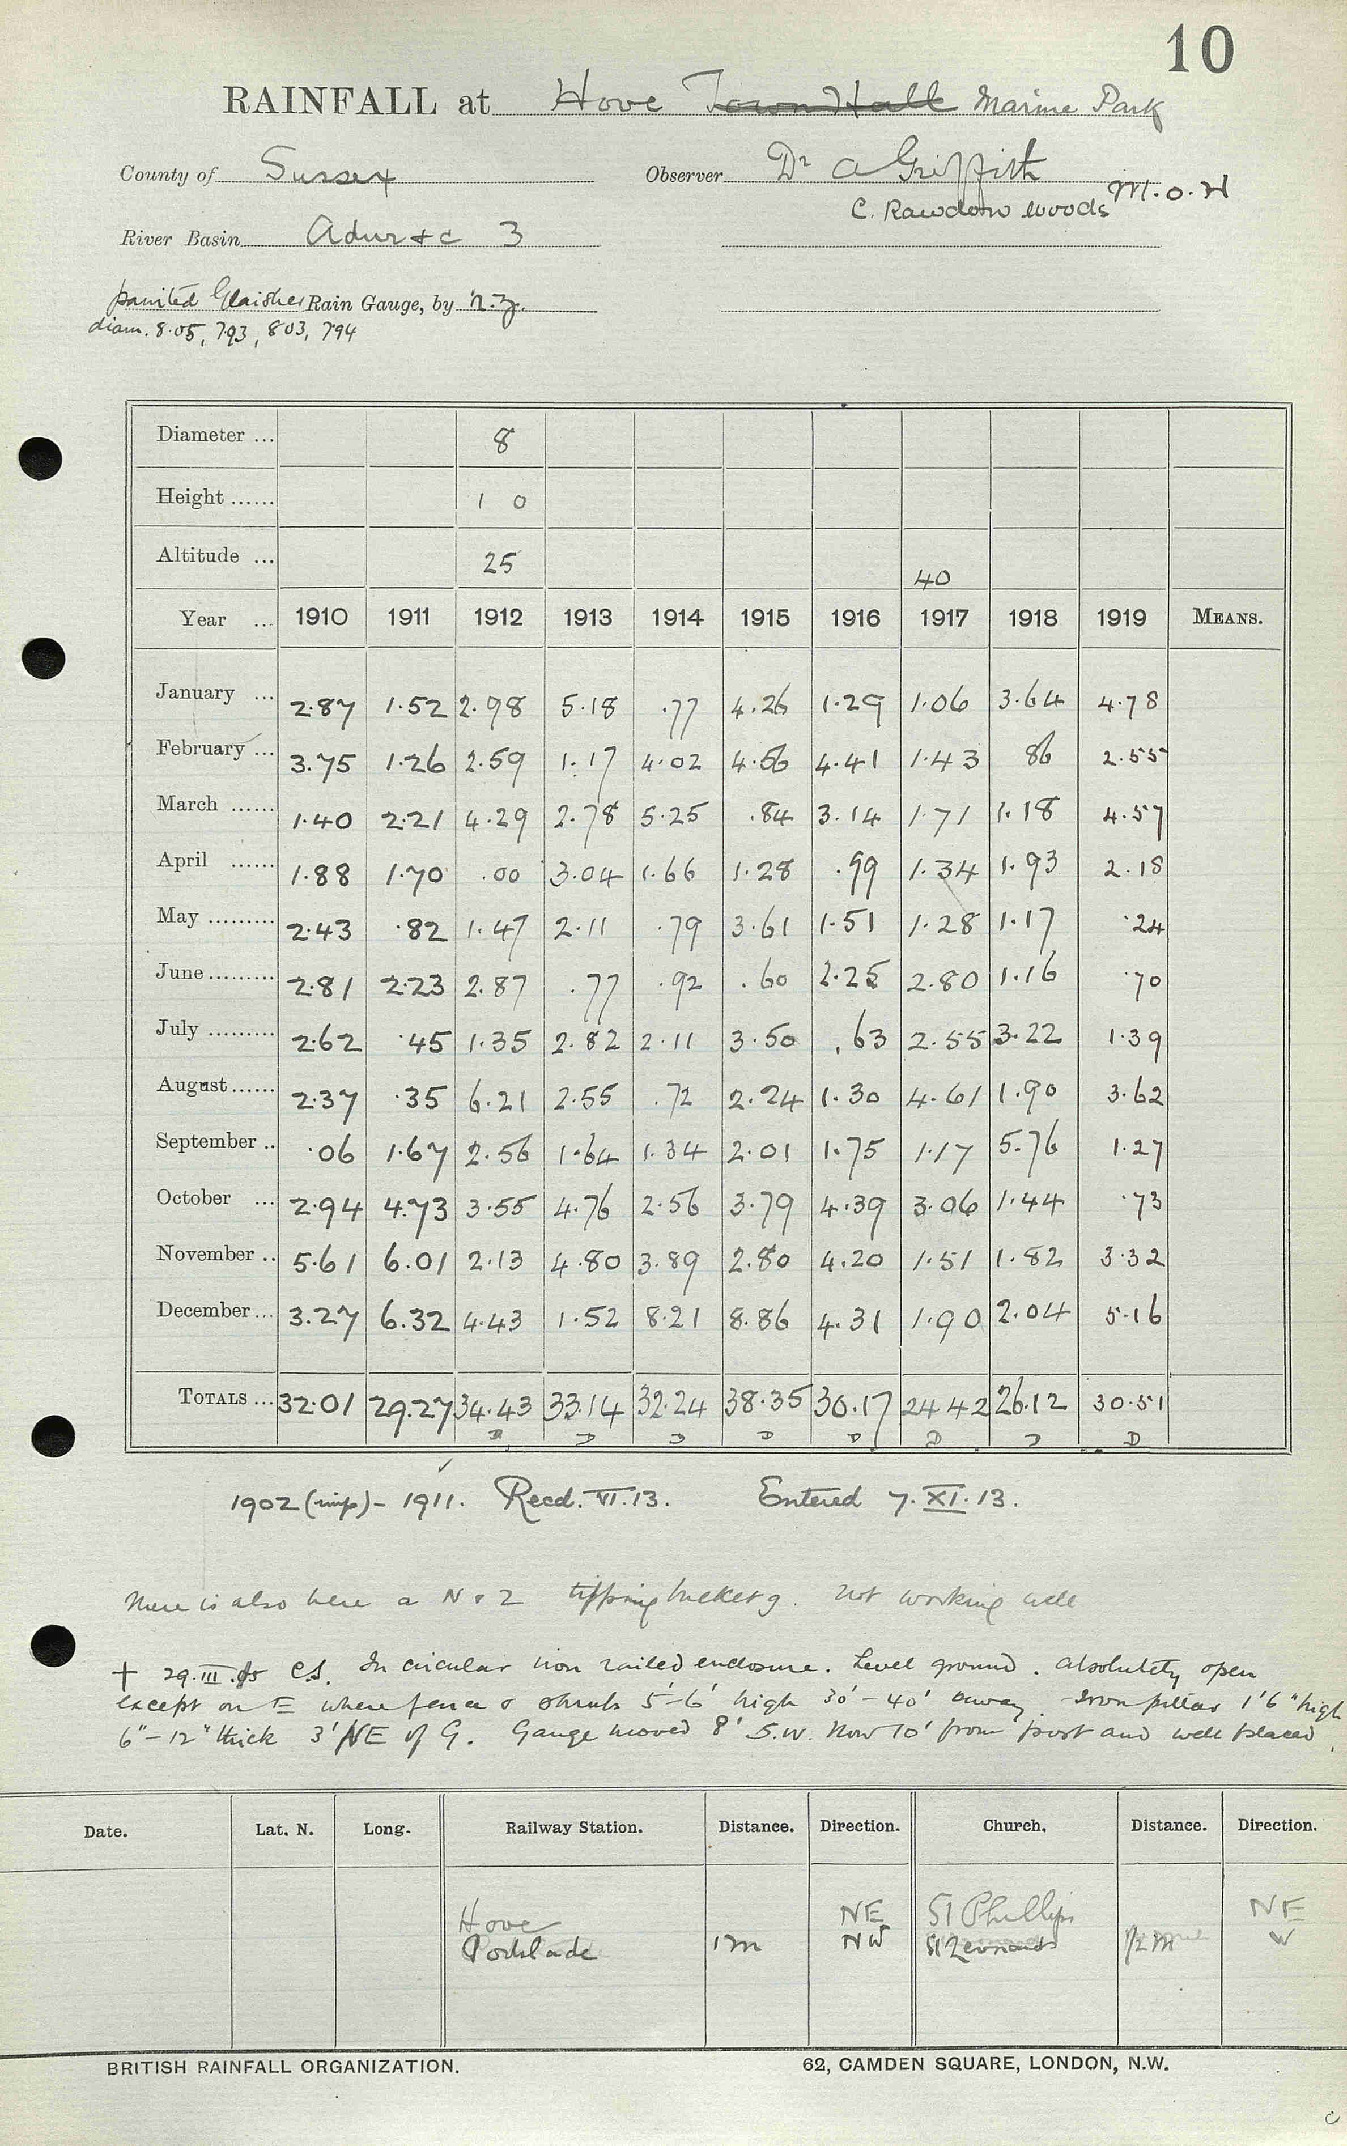 10
RAINFALL at Hove Town Hall Marine Park
County of Sussex Observer Dr A Griffith M.O.H
C. Rawdon Woods
River Basin Adur &c 3
painted Glaisher Rain Gauge, by N.Z.
diam. 8.05, 7.93, 8.03, 7.94
Diameter ... 8
Height ...... 1 0
Altitude ... 25 40
Year ... 1910 1911 1912 1913 1914 1915 1916 1917 1918 1919 MEANS.
January ... 2.87 1.52 2.98 5.18 .77 4.26 1.29 1.06 3.64 4.78
February ... 3.75 1.26 2.59 1.17 4.02 4.56 4.41 1.43 86 2.55
March ...... 1.40 2.21 4.29 2.78 5.25 .84 3.14 1.71 1.18 4.57
April ...... 1.88 1.70 .00 3.04 1.66 1.28 .99 1.34 1.93 2.18
May ......... 2.43 .82 1.47 2.11 .79 3.61 1.51 1.28 1.17 .24
June ......... 2.81 2.23 2.87 .77 .92 .60 2.25 2.80 1.16 .70
July ......... 2.62 .45 1.35 2.82 2.11 3.50 .63 2.55 3.22 1.39
August ...... 2.37 .35 6.21 2.55 .72 2.24 1.30 4.61 1.90 3.62
September .. .06 1.67 2.56 1.64 1.34 2.01 1.75 1.17 5.76 1.27
October ... 2.94 4.73 3.55 4.76 2.56 3.79 4.39 3.06 1.44 .73
November .. 5.61 6.01 2.13 4.80 3.89 2.80 4.20 1.51 1.82 3.32
December ... 3.27 6.32 4.43 1.52 8.21 8.86 4.31 1.90 2.04 5.16
TOTALS ... 32.01 29.27 34.43 33.14 32.24 38.35 30.17 24.42 26.12 30.51
D D D D D D D D
1902 (imp) - 1911. Recd. VI.13. Entered 7.XI.13.
There is also here a N & Z tipping bucket g. not working well
† 29.III. CS. In circular iron railed enclosure. Level ground. absolutely open
except on E where fence & shrubs 5'-6' high 30'-40' away. Iron pillar 1'6" high
6"-12" thick 3' NE of G. Gauge moved 8' S.W. Now 10' from post and well placed.
Date. Lat. N. Long. Railway Station. Distance. Direction. Church. Distance. Direction.
Hove NE St Phillips NE
Portslade 1m NW St Leonards 1/2 m W
BRITISH RAINFALL ORGANIZATION. 62, CAMDEN SQUARE, LONDON, N.W.
c